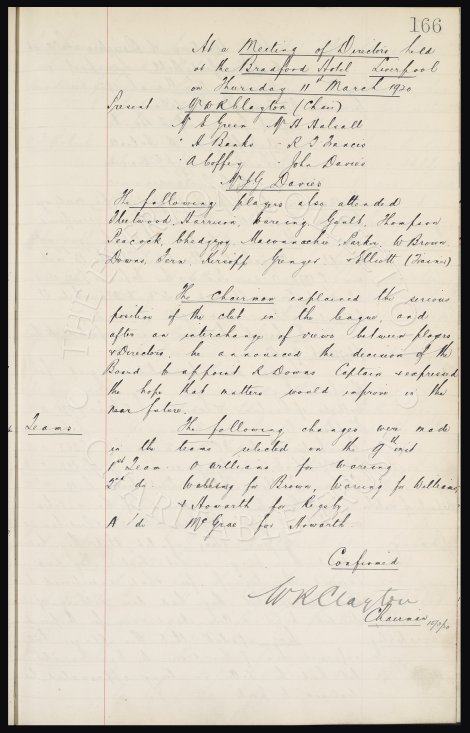 166
At a Meeting of Directors held
at the Bradford Hotel Liverpool
on Thursday 11th March 1920
Present Mr W R Clayton (Chair)
Mr E Green Mr H Halsall
" A Banks - R J Francis
" A Coffey - John Davies
Mr J G Davies
The following players also attended
Fleetwood, Harrison, Wareing, Gault, Thompson
Peacock, Chedgzoy, Maconnachie, Parker, W Brown
Downs, Fern, Kirsopp Grenyer & Elliott (Trainer)
The Chairman explained the serious
position of the club in the league, and
after an interchange of views between players
& Directors, he announced the decision of the
Board to appoint R Downs Captain & expressed
the hope that matters would improve in the
near future.
Teams. The following changes were made
in the teams selected on the 9th inst
1st Team Williams for Wareing
2nd do for Brown, Wareing for Williams,
& Howarth for Rigsby
A do McGrae for Howarth
Confirmed
W R Clayton
Chairman